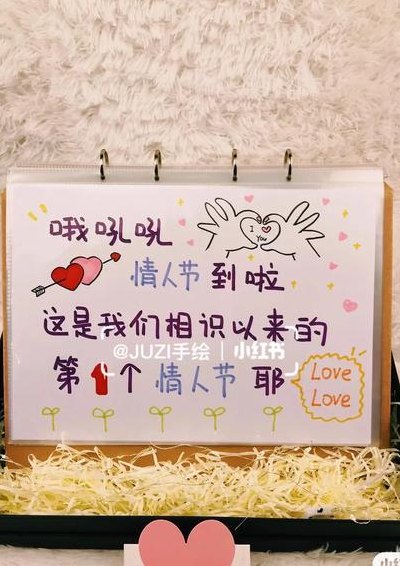 哦吼吼
I
You
情人节到啦
这是我们相识以来的
@JUZI手绘 | 小红书
第1个情人节耶
Love
Love